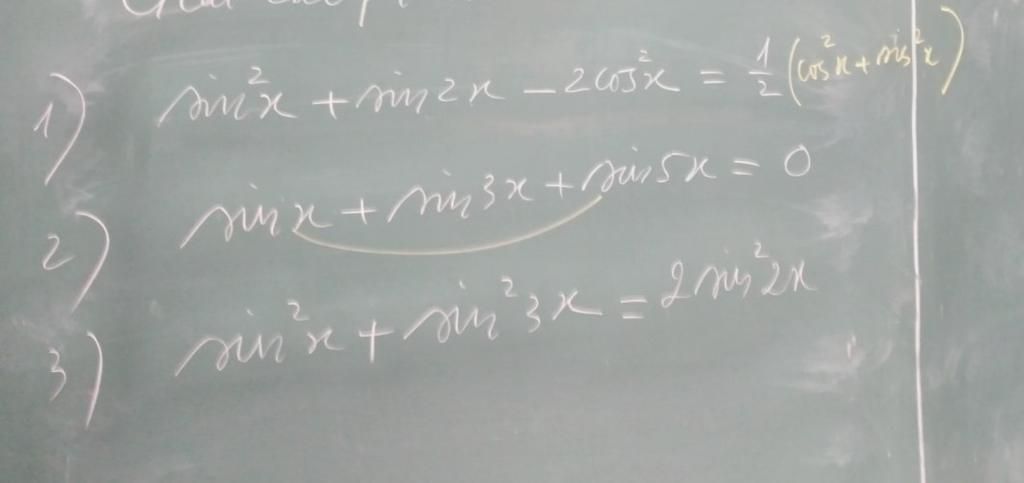 1) sin²x + sin2x − 2cos²x = 1/2 (cos²x + sin²x)
2) sinx + sin3x + sin5x = 0
3) sin²x + sin²3x = 2sin²2x